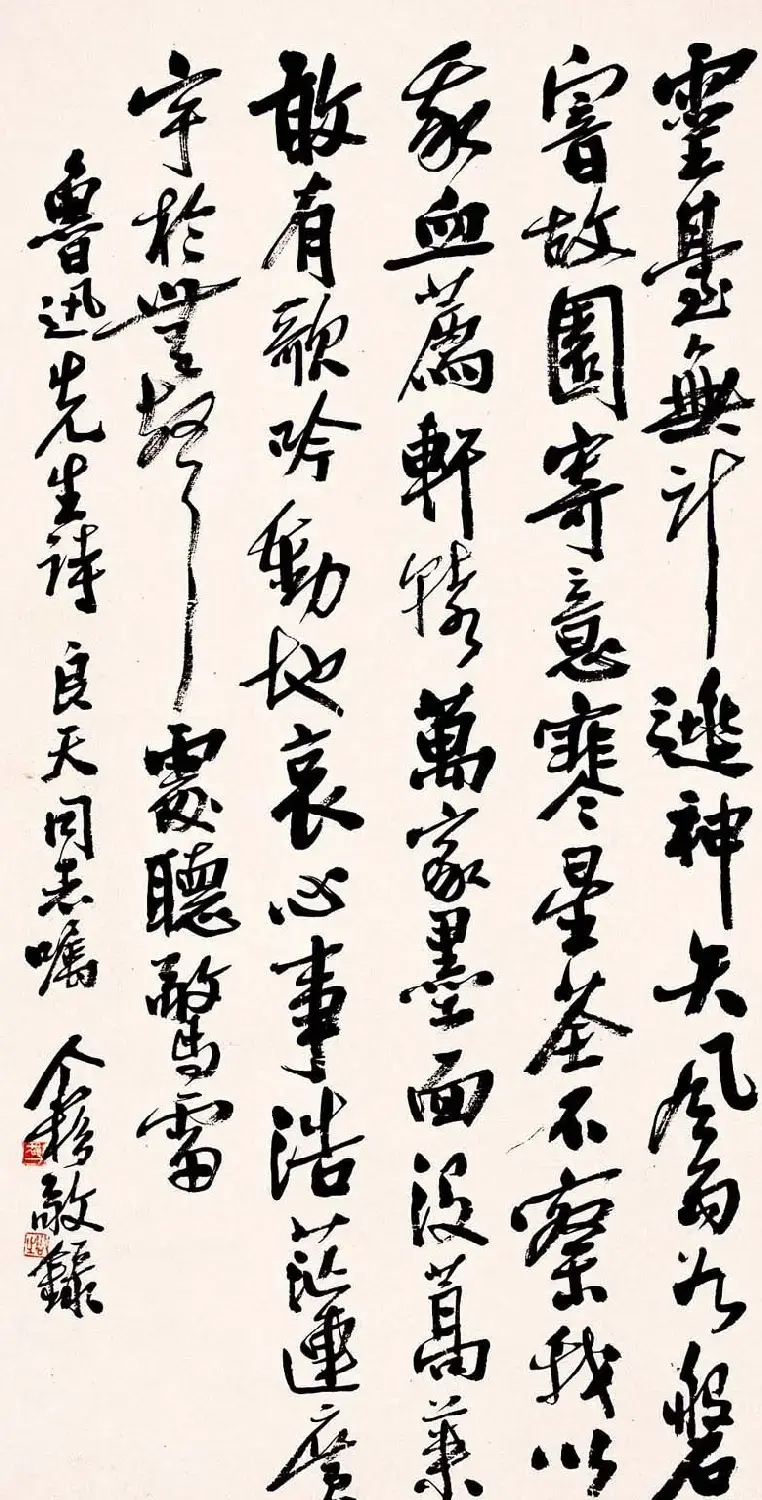 靈臺無計逃神矢風雨如磐
闇故園寄意寒星荃不察我以
我血薦軒轅萬家墨面沒蒿萊
敢有歌吟動地哀心事浩茫連廣
宇於無聲處聽驚雷
魯迅先生詩 良天同志囑 个簃敬錄